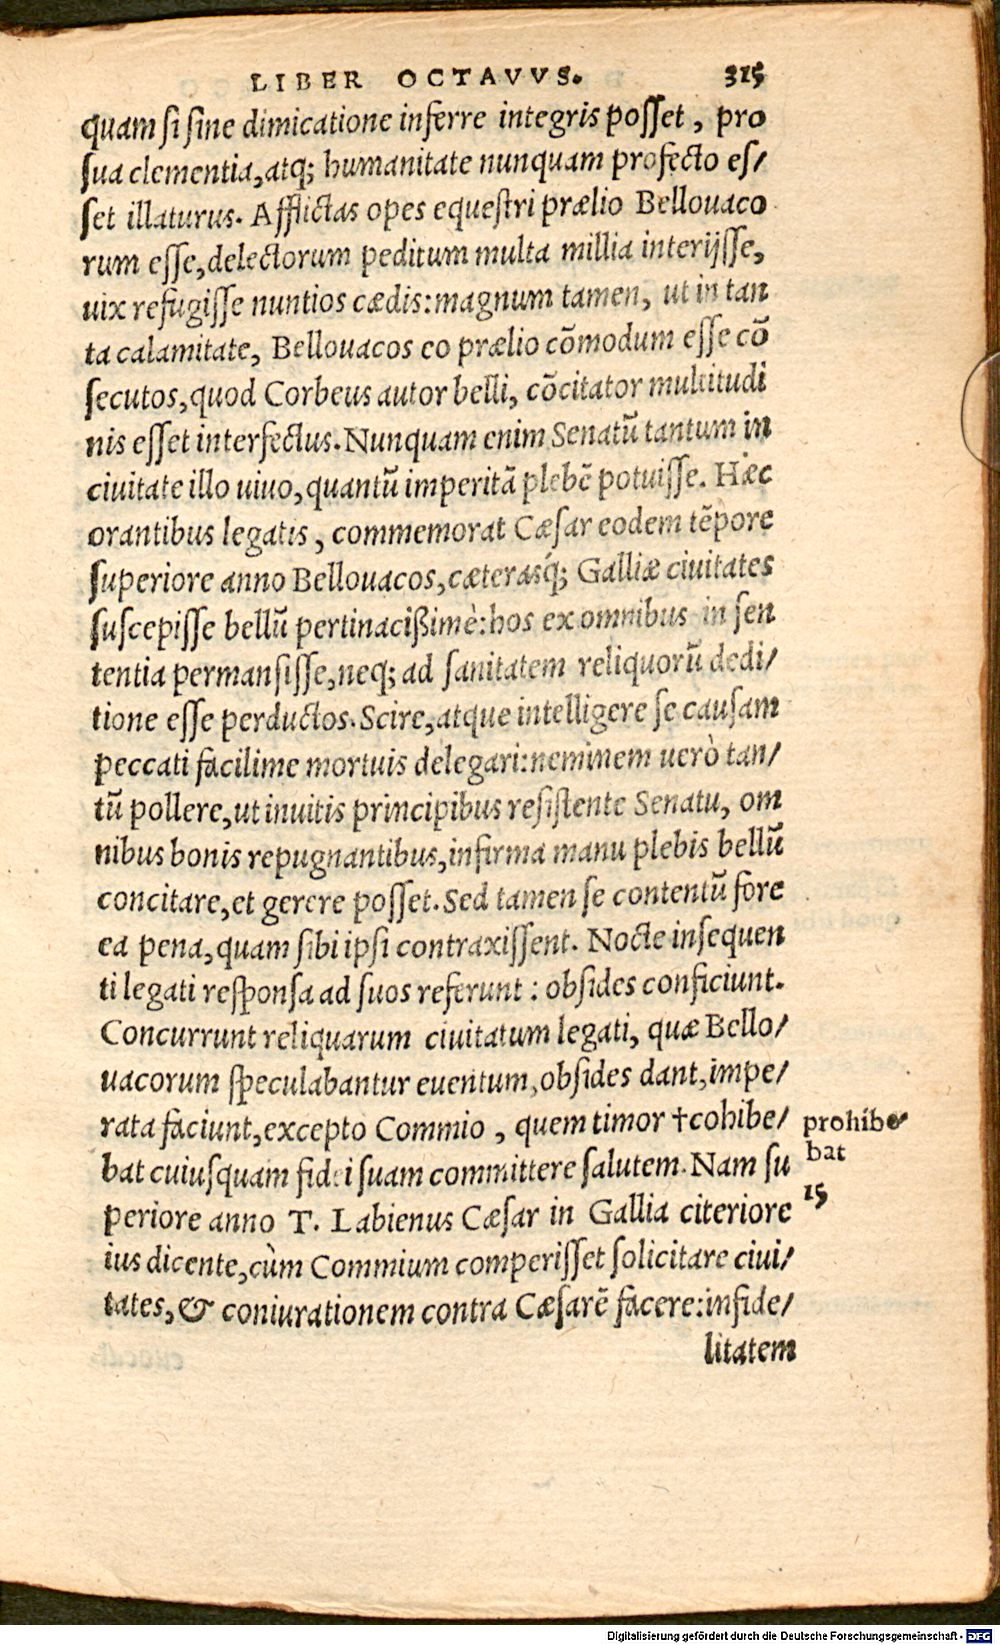 LIBER OCTAVVS. 315
quam si sine dimicatione inferre integris posset, pro
sua clementia, atq; humanitate nunquam profecto es/
set illaturus. Afflictas opes equestri prælio Bellouaco
rum esse, delectorum peditum multa millia interijsse,
uix refugisse nuntios cædis: magnum tamen, ut in tan
ta calamitate, Bellouacos eo prælio cõmodum esse cõ
secutos, quod Corbeus autor belli, cõcitator multitudi
nis esset interfectus. Nunquam enim Senatũ tantum in
ciuitate illo uiuo, quantũ imperitã plebẽ potuisse. Hæc
orantibus legatis, commemorat Cæsar eodem tẽpore
superiore anno Bellouacos, cæterasq́; Galliæ ciuitates
suscepisse bellũ pertinacißimè: hos ex omnibus in sen
tentia permansisse, neq; ad sanitatem reliquorũ dedi/
tione esse perductos. Scire, atque intelligere se causam
peccati facilime mortuis delegari: neminem uerò tan/
tũ pollere, ut inuitis principibus resistente Senatu, om
nibus bonis repugnantibus, infirma manu plebis bellũ
concitare, et gerere posset. Sed tamen se contentũ fore
ea pena, quam sibi ipsi contraxissent. Nocte insequen
ti legati responsa ad suos referunt: obsides conficiunt.
Concurrunt reliquarum ciuitatum legati, quæ Bello/
uacorum speculabantur euentum, obsides dant, impe/
rata faciunt, excepto Commio, quem timor †cohibe/
prohibe/
bat
bat cuiusquam fidei suam committere salutem. Nam su
15
periore anno T. Labienus Cæsar in Gallia citeriore
ius dicente, cùm Commium comperisset solicitare ciui/
tates, & coniurationem contra Cæsarẽ facere: infide/
litatem
Digitalisierung gefördert durch die Deutsche Forschungsgemeinschaft - DFG